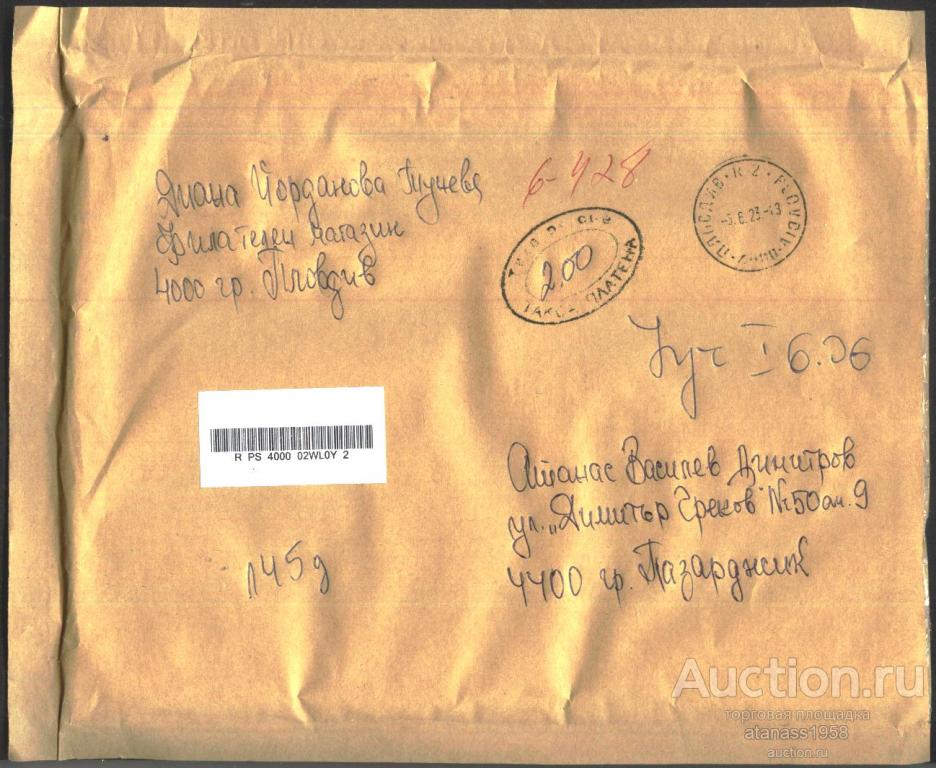 Диана Йорданова Тучева
Филателен магазин
4000 гр. Пловдив
6-428
T.P. PLATENA
2.00
ТАКСА ПЛАТЕНА
R 2 PLOVDIV
-5.6.23-13
I 6.06
R PS 4000 02WL0Y 2
Атанас Василев Димитров
ул. „Димитър Греков" №50 ап. 9
4400 гр. Пазарджик
145g
Auction.ru
торговая площадка
atanass1958
auction.ru